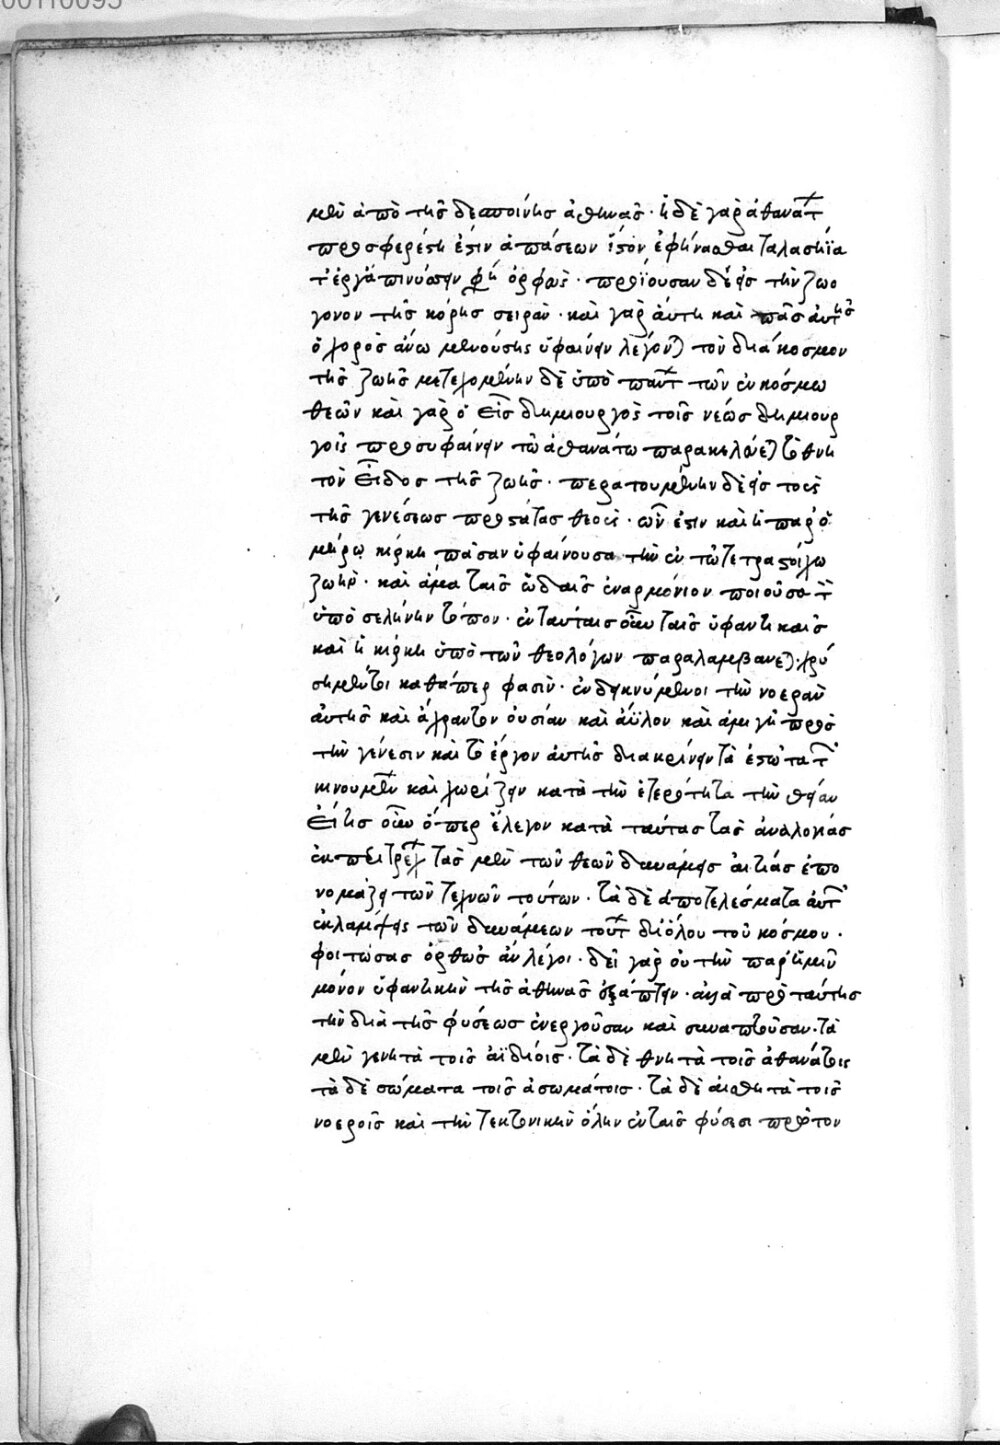 00110095
μὲν ἀπὸ τῆς δεσποίνης ἀθηνᾶς · ἡ δὲ γὰρ ἀθανάτ
προφερέστη ἐστὶν ἁπάσεων ἱστὸν ἐφήνασθαι ταλασήϊα
τ' ἔργα πινύσσειν φη ὀρφεὺς · προϊοῦσαν δὲ εἰς τὴν ζωο
γόνον τῆς κόρης σειρὰν · καὶ γὰρ αὐτὴ καὶ πᾶς αὐτῆς
ὁ χορὸς ἄνω μενούσης ὑφαίνειν λέγον) τὸν διάκοσμον
τῆς ζωῆς μετεχομένην δὲ ὑπὸ πάντ τῶν ἐν κόσμω
θεῶν καὶ γὰρ ὁ εἷς δημιουργὸς τοῖς νέοις δημιουρ
γοῖς προσυφαίνειν τῶ ἀθανάτω παρακελεύε) τὸ θνη
τὸν εἶδος τῆς ζωῆς · περατουμένην δὲ εἰς τοὺς
τῆς γενέσεως προστάτας θεοὺς · ὧν ἐστιν καὶ ἡ παρ' ὁ
μήρω κίρκη πᾶσαν ὑφαίνουσα τὴν ἐν τῶ τετραστοίχω
ζωὴν · καὶ ἅμα ταῖς ὠδαῖς ἐναρμόνιον ποιοῦσα τ
ὑπὸ σελήνην τόπον · ἐν ταύταις οὖν ταῖς ὑφαντικαῖς
καὶ ἡ κίρκη ὑπὸ τῶν θεολόγων παραλαμβάνε) · χρυ
σῆ μέντοι καθάπερ φασὶν · ἐνδεικνύμενοι τὴν νοερὰν
αὐτῆς καὶ ἄχραντον οὐσίαν καὶ ἄϋλον καὶ ἀμιγῆ πρὸς
τὴν γένεσιν καὶ τὸ ἔργον αὐτῆς διακρίνειν τὰ ἑστῶτα τ
κινουμέν καὶ χωρίζειν κατὰ τὴν ἑτερότητα τὴν θείαν
εἴ τις οὖν ὅπερ ἔλεγον κατὰ ταύτας τὰς ἀναλογίας
τὰς μὲν τῶν θεῶν δυνάμεις αἰτίας ἐπο
νομάζει τῶν τεχνῶν τούτων · τὰ δὲ ἀποτελέσματα αὐτ
ἐκλάμψεις τῶν δυνάμεων τούτ δι' ὅλου τοῦ κόσμου ·
φοιτώσας ὀρθῶς ἂν λέγοι · δεῖ γὰρ οὐ τὴν παρ' ἡμῖν
μόνον ὑφαντικὴν τῆς ἀθηνᾶς ἐξάπτειν · ἀλλὰ πρὸ ταύτης
τὴν διὰ τῆς φύσεως ἐνεργοῦσαν καὶ συνάπτουσαν · τὰ
μὲν γενητὰ τοῖς ἀϊδίοις · τὰ δὲ θνητὰ τοῖς ἀθανάτοις
τὰ δὲ σώματα τοῖς ἀσωμάτοις · τὰ δὲ αἰσθητὰ τοῖς
νοεροῖς καὶ τὴν τεκτονικὴν ὅλην ἐν ταῖς φύσεσι πρῶτον